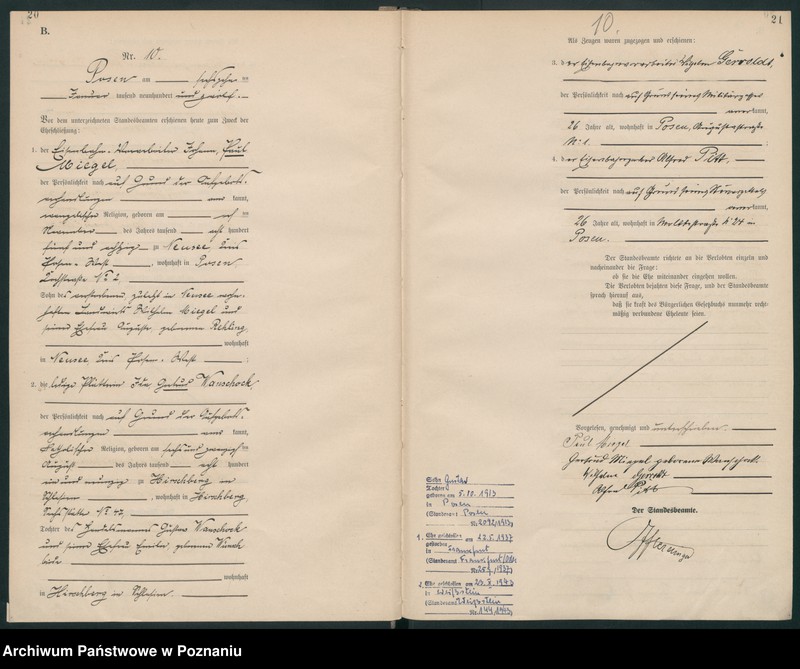 20
B.
Nr. 10.
Posen am sechszehnten
Januar tausend neunhundert und zwölf.
Vor dem unterzeichneten Standesbeamten erschienen heute zum Zweck der
Eheschließung:
1. der Eisenbahn-Vorarbeiter Johann, Paul
Miegel,
der Persönlichkeit nach auf Grund der Aufgebots-
verhandlungen kannt,
evangelischer Religion, geboren am
November des Jahres tausend acht hundert
fünf und achtzig zu Neusee, Kreis
Posen-West, wohnhaft in Posen
No 2,
Sohn des verstorbenen, zuletzt in Neusee wohn-
haften Landwirts Wilhelm Miegel und
seiner Ehefrau Auguste, geborenen Rehling
wohnhaft
in Neusee, Kreis Posen-West ;
2. die ledige Plätterin Ida, Gertrud Wanschock
der Persönlichkeit nach auf Grund der Aufgebots-
verhandlungen kannt,
katholischer Religion, geboren am sechs und zwanzigsten
August des Jahres tausend acht hundert
ein und neunzig zu Hirschberg in
Schlesien, wohnhaft in Hirschberg
No 42,
Tochter des Handelsmannes Gustav Wanschock
und seiner Ehefrau Emilie, geborenen
wohnhaft
in Hirschberg in Schlesien.
21
10.
Als Zeugen waren zugezogen und erschienen:
3. der Eisenbahnvorarbeiter
der Persönlichkeit nach auf Grund seines Militärpasses
kannt,
26 Jahre alt, wohnhaft in Posen, Augustastraße
No 1. ;
4. der Alfred Pitt,
der Persönlichkeit nach auf Grund seines
kannt,
26 Jahre alt, wohnhaft in Moltkestraße No 24 in
Posen.
Der Standesbeamte richtete an die Verlobten einzeln und
nacheinander die Frage:
ob sie die Ehe miteinander eingehen wollen.
Die Verlobten bejahten diese Frage, und der Standesbeamte
sprach hierauf aus,
daß sie kraft des Bürgerlichen Gesetzbuchs nunmehr recht-
mäßig verbundene Eheleute seien.
Vorgelesen, genehmigt und unterschrieben.
Paul Miegel
Gertrud Miegel geborene Wanschock
Wilhelm
Alfred Pitt
Der Standesbeamte.
Sohn
Tochter
geboren am 5.10.1913
in Posen
(Standesamt Posen
Nr. 2032/1913)
1. Ehe geschlossen am 22.5.1937
in Frankfurt
(Standesamt Frankfurt/Oder
1937)
2. Ehe geschlossen am 1943
in Weißstein
(Standesamt Weißstein
Nr. 144/1943)
Archiwum Państwowe w Poznaniu